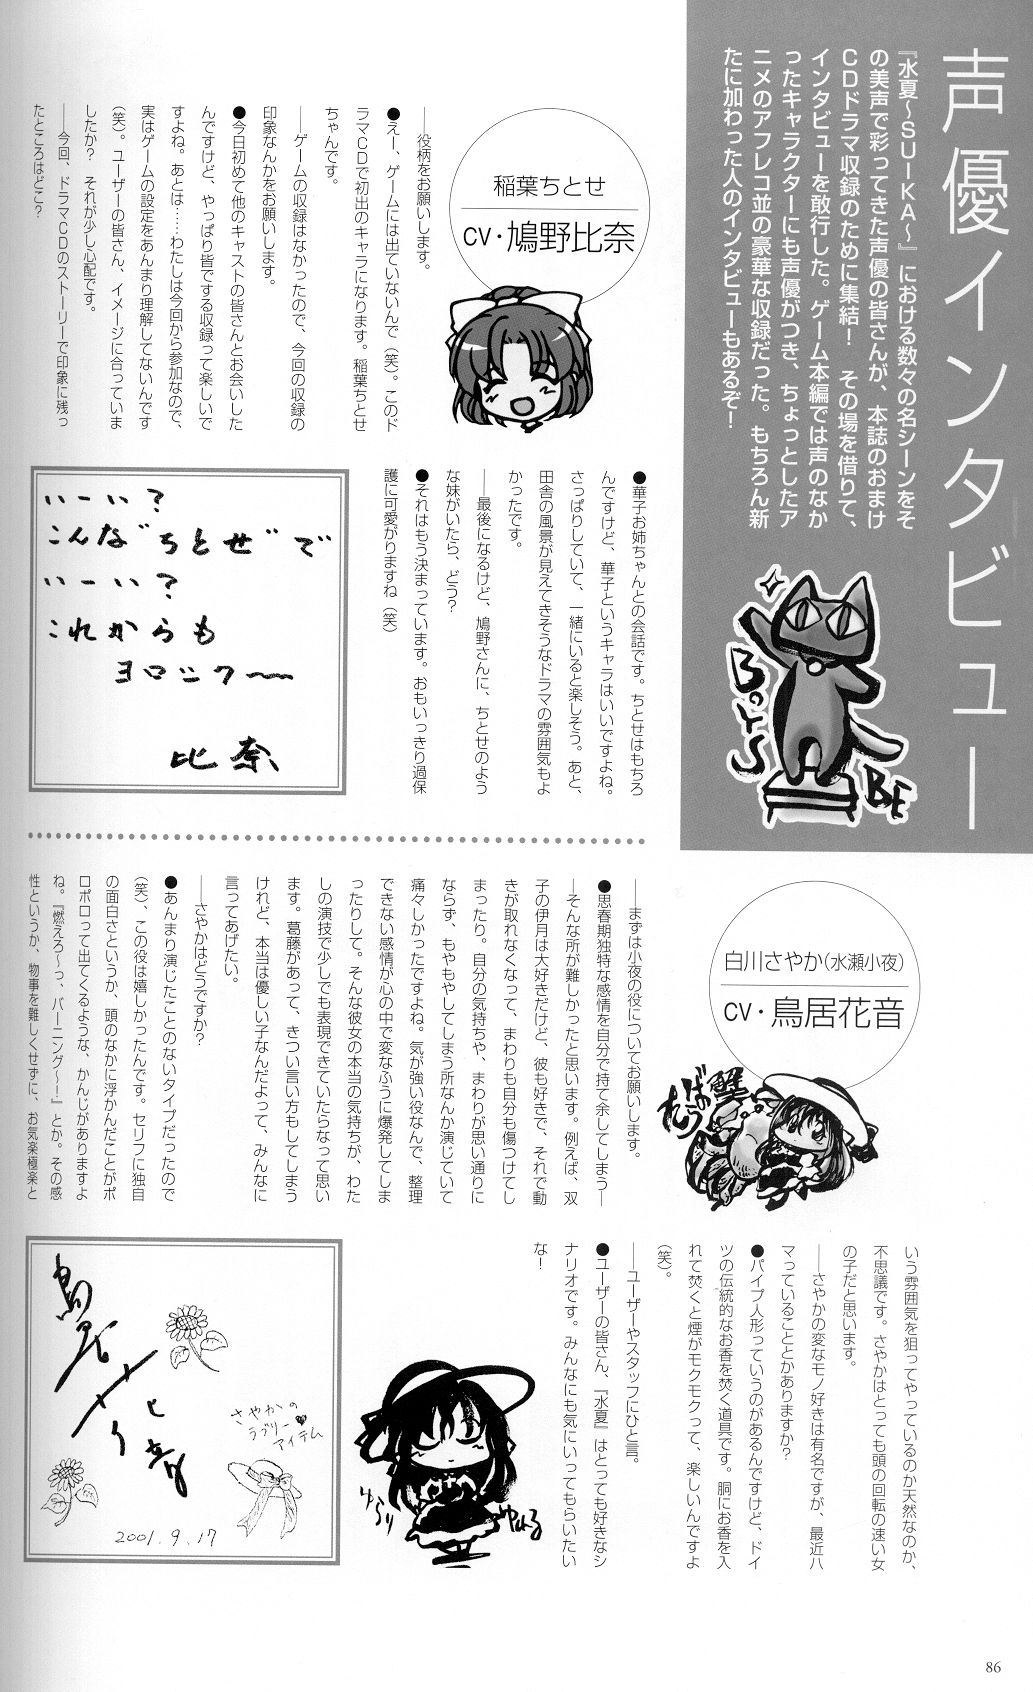 声優インタビュー
『水夏～SUIKA～』における数々の名シーンをそ
の美声で彩ってきた声優の皆さんが、本誌のおまけ
CDドラマ収録のために集結！　その場を借りて、
インタビューを敢行した。ゲーム本編では声のなか
ったキャラクターにも声優がつき、ちょっとしたア
ニメのアフレコ並の豪華な収録だった。もちろん新
たに加わった人のインタビューもあるぞ！
BOYS
BE
稲葉ちとせ
CV・鳩野比奈
――役柄をお願いします。
●えー、ゲームには出ていないんで（笑）。このド
ラマCDで初出のキャラになります。稲葉ちとせ
ちゃんです。
――ゲームの収録はなかったので、今回の収録の
印象なんかをお願いします。
●今日初めて他のキャストの皆さんとお会いした
んですけど、やっぱり皆でする収録って楽しいで
すよね。あとは……わたしは今回から参加なので、
実はゲームの設定をあんまり理解してないんです
（笑）。ユーザーの皆さん、イメージに合っていま
したか？　それが少し心配です。
――今回、ドラマCDのストーリーで印象に残っ
たところはどこ？
●華子お姉ちゃんとの会話です。ちとせはもちろ
んですけど、華子というキャラはいいですよね。
さっぱりしていて、一緒にいると楽しそう。あと、
田舎の風景が見えてきそうなドラマの雰囲気もよ
かったです。
――最後になるけど、鳩野さんに、ちとせのよう
な妹がいたら、どう？
●それはもう決まっています。おもいっきり過保
護に可愛がりますね（笑）
いーい？
こんな"ちとせ"で
いーい？
これからも
ヨロシク～
比奈
白川さやか（水瀬小夜）
CV・鳥居花音
蟹
ばっ
たぁっ
――まずは小夜の役についてお願いします。
●思春期独特な感情を自分で持て余してしまう―
―そんな所が難しかったと思います。例えば、双
子の伊月は大好きだけど、彼も好きで、それで動
きが取れなくなって、まわりも自分も傷つけてし
まったり。自分の気持ちや、まわりが思い通りに
ならず、もやもやしてしまう所なんか演じていて
痛々しかったですよね。気が強い役なんで、整理
できない感情が心の中で変なふうに爆発してしま
ったりして。そんな彼女の本当の気持ちが、わた
しの演技で少しでも表現できていたらなって思い
ます。葛藤があって、きつい言い方もしてしまう
けれど、本当は優しい子なんだよって、みんなに
言ってあげたい。
――さやかはどうですか？
●あんまり演じたことのないタイプだったので
（笑）、この役は嬉しかったんです。セリフに独自
の面白さというか、頭のなかに浮かんだことがポ
ロポロって出てくるような、かんじがありますよ
ね。『燃えろ～っ、バーニング～！』とか。その感
性というか、物事を難しくせずに、お気楽極楽と
いう雰囲気を狙ってやっているのか天然なのか、
不思議です。さやかはとっても頭の回転の速い女
の子だと思います。
――さやかの変なモノ好きは有名ですが、最近ハ
マっていることとかありますか？
●パイプ人形っていうのがあるんですけど、ドイ
ツの伝統的なお香を焚く道具です。胴にお香を入
れて焚くと煙がモクモクって、楽しいんですよ
（笑）。
――ユーザーやスタッフにひと言。
●ユーザーの皆さん、『水夏』はとっても好きなシ
ナリオです。みんなにも気にいってもらいたい
な！
ゆらり
鳥居花音
さやかの
ラブリー
アイテム
2001.9.17
86